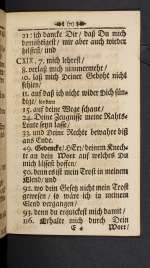 (71)
21. ich dancke Dir/ daß Du mich
demüthigest/ mir aber auch wieder
helffest/ und
CXIX. 7. mich lehrest/
8. verlaß mich nimmermehr/
10. laß mich Deiner Gebote nicht
fehlen/
11. auf daß ich nicht wider Dich sün-
dige/ sondern
15. auf deine Wege schaue/
24. Deine Zeugnisse meine Rahts-
Leute seyn lasse/
33. und Deine Rechte bewahre biß
ans Ende.
49. Gedencke/ HErr/ deinem Knech-
te an dein Wort auf welches Du
mich lässest hoffen/
50. denn es ist mein Trost in meinem
Elend/ und
92. wo dein Gesetz nicht mein Trost
gewesen/ so wäre ich in meinem
Elend vergangen/
93. denn du erquickest mich damit/
116. Erhalte mich durch Dein
E 4 Wort/